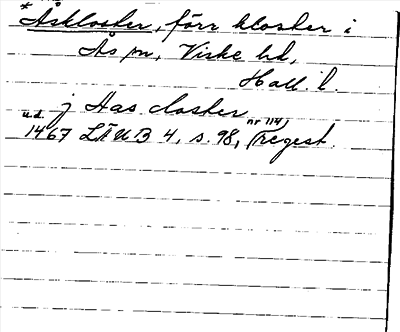 *Åskloster, förr kloster i
Ås sn, Viske hd,
Hall. l.
j Aas closter
u.d. 1467 LÄUB 4, s. 98, (nr 114) regest.